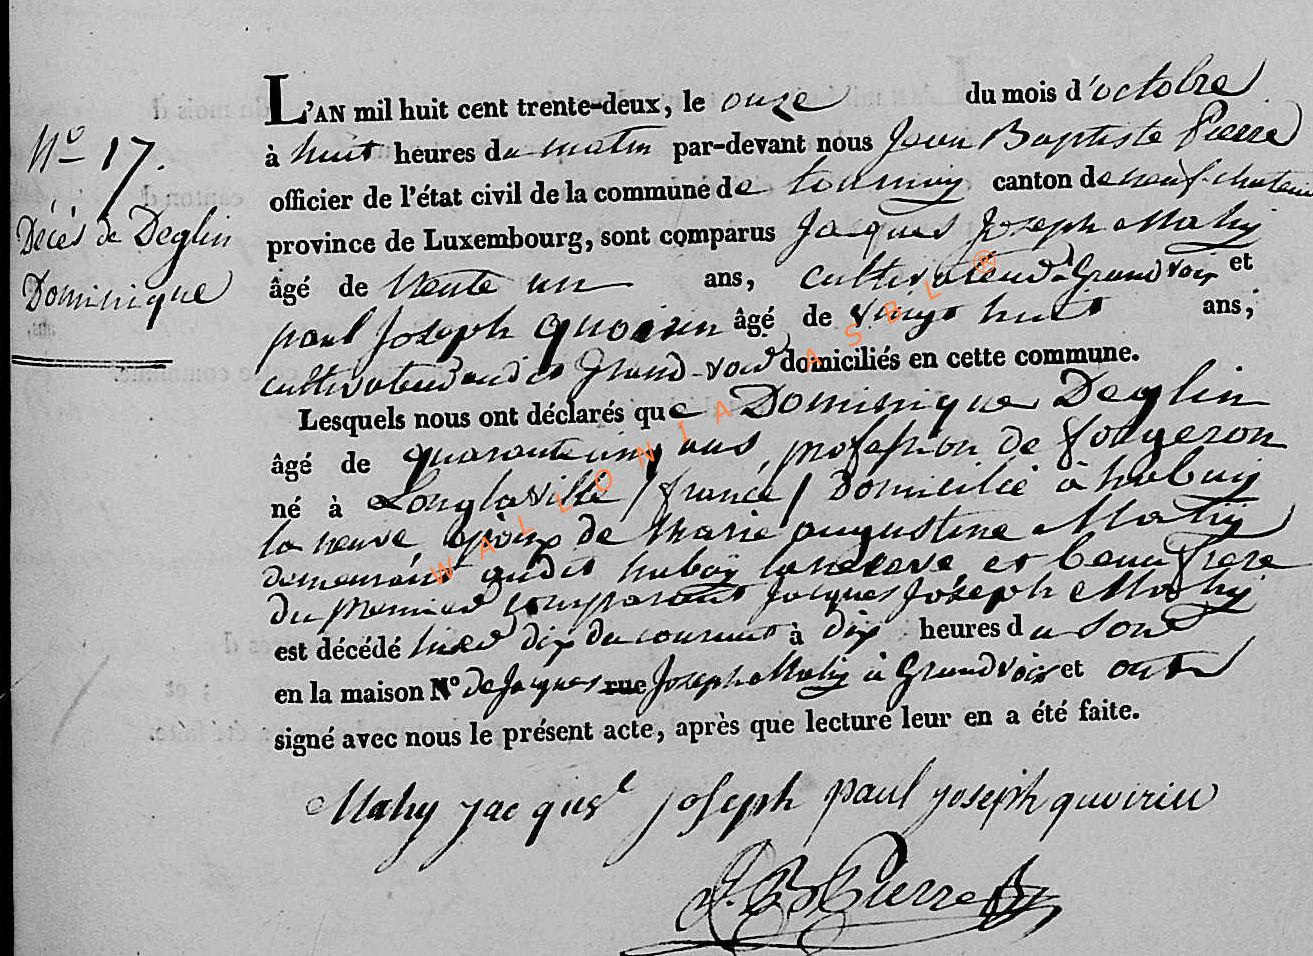 No 17.
Décés de Deglin
Dominique
L'AN mil huit cent trente-deux, le onze du mois d'octobre
à huit heures du matin par-devant nous Jean Baptiste Pierre
officier de l'état civil de la commune de tournay canton de neufchateau
province de Luxembourg, sont comparus Jacques Joseph Mahy
âgé de trente un ans, cultivateur à Grandvoir et
paul Joseph quoirin âgé de vingt huit ans,
cultivateur audit Grand-voir domiciliés en cette commune.
Lesquels nous ont déclarés que Dominique Deglin
âgé de quarante cinq ans, profession de forgeron
né à Longlaville / france / Domicilié à habay
la neuve, époux de Marie augustine Mahy
demeurant audit habay laneuve et beau frere
du premier comparant Jacques Joseph Mahy
est décédé hier dix du courant à dix heures du soir
en la maison No de Jacques rue Joseph Mahy à Grandvoir et ont
signé avec nous le présent acte, après que lecture leur en a été faite.
Mahy jacques joseph paul joseph quoirin
J. B. Pierre
WALLONIA ASBL ®